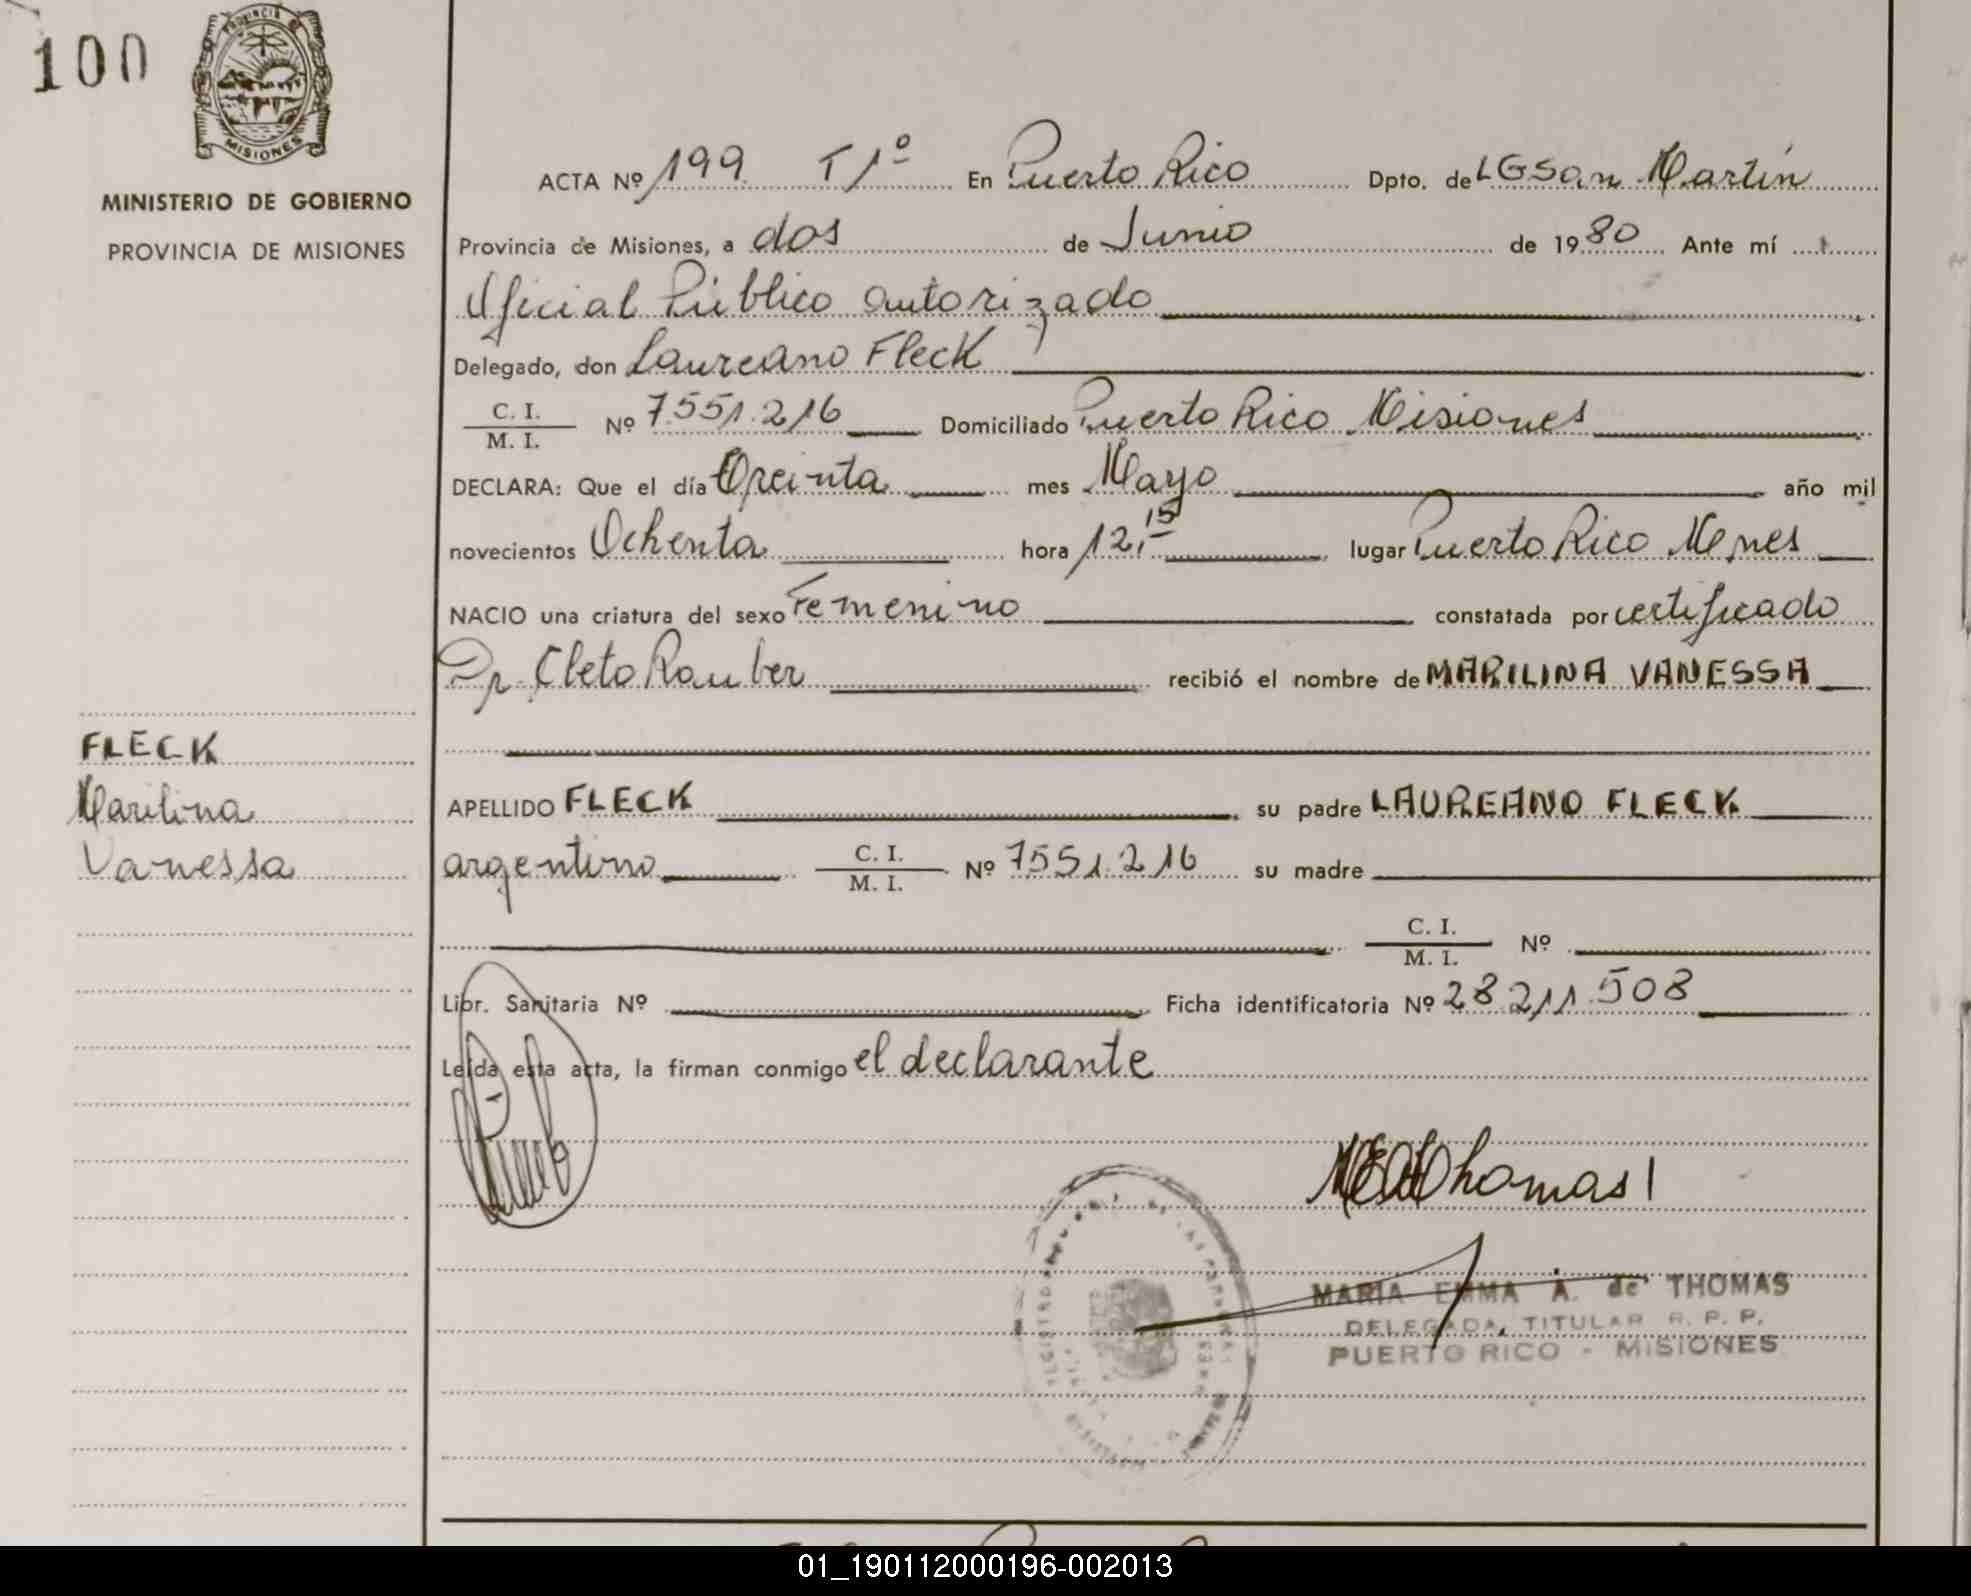 100
PROVINCIA DE
MISIONES
MINISTERIO DE GOBIERNO
PROVINCIA DE MISIONES
FLECK
Marilina
Vanessa
ACTA Nº 199 T1º En Puerto Rico Dpto. de LGSan Martín
Provincia de Misiones, a dos de Junio de 1980 Ante mí
Oficial Público autorizado
Delegado, don Laureano Fleck
C. I.
M. I. Nº 7.551.216 Domiciliado Puerto Rico Misiones
DECLARA: Que el día Treinta mes Mayo año mil
novecientos Ochenta hora 12,15 lugar Puerto Rico Mnes
NACIO una criatura del sexo Femenino constatada por certificado
Dr. Cleto Rauber recibió el nombre de MARILINA VANESSA
APELLIDO FLECK su padre LAUREANO FLECK
argentino C. I.
M. I. Nº 7551.216 su madre
C. I.
M. I. Nº
Libr. Sanitaria Nº Ficha identificatoria Nº 28.211.508
Leída esta acta, la firman conmigo el declarante
Thomas
MARIA EMMA A. de THOMAS
DELEGADA TITULAR R. P. P.
PUERTO RICO - MISIONES
01_190112000196-002013